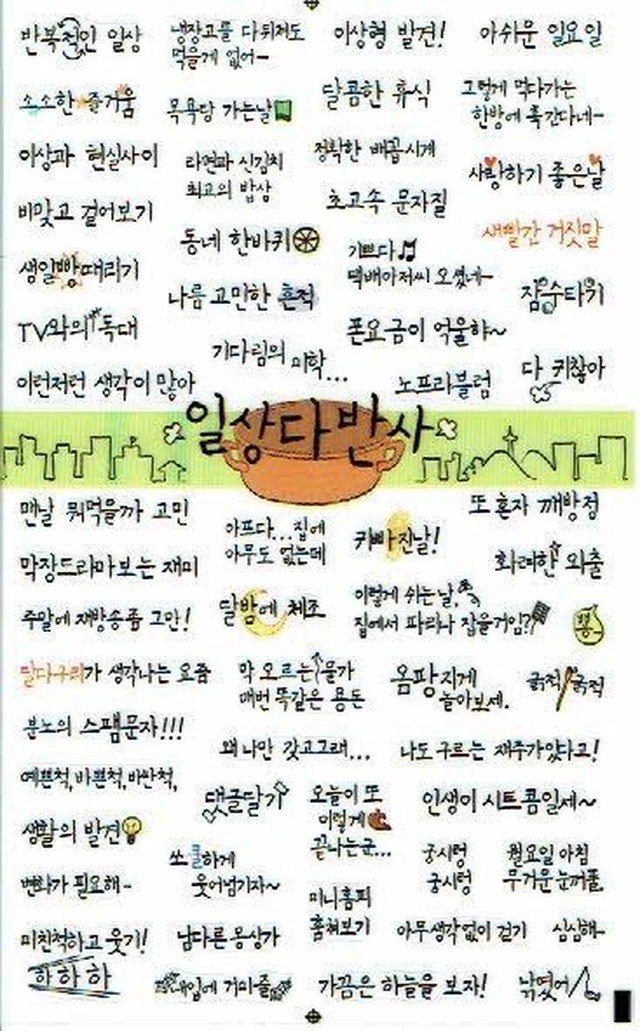 반복적인 일상
냉장고를 다 뒤져도
먹을게 없어~
이상형 발견!
아쉬운 일요일
소소한 즐거움
목욕탕 가는날
달콤한 휴식
그렇게 먹다가는
한방에 훅간다네~
이상과 현실사이
라면과 신김치
최고의 밥상
정확한 배꼽시계
사랑하기 좋은날
비맞고 걸어보기
초고속 문자질
동네 한바퀴
새빨간 거짓말
생일빵때리기
기쁘다
택배아저씨 오셨네~
나름 고민한 흔적
잠수타기
TV와의 독대
폰요금이 억울햐~
기다림의 미학...
이런저런 생각이 많아
노프라블럼
다 귀찮아
일상다반사
맨날 뭐먹을까 고민
아프다...집에
아무도 없는데
귀빠진날!
또 혼자 깨방정
막장드라마보는 재미
화려한 외출
주말에 재방송좀 그만!
달밤에 체조
이렇게 쉬는날,
집에서 파리나 잡을거임?
뿡
달다구리가 생각나는 요즘
막 오르는 물가
매번 똑같은 용돈
옴팡지게
놀아보세.
긁적 긁적
분노의 스팸문자!!!
왜 나만 갖고그래...
나도 구르는 재주가있다고!
예쁜척,바쁜척,비싼척,
댓글달기
오늘이 또
이렇게
끝나는군...
인생이 시트콤일세~
생활의 발견
쏘쿨하게
웃어넘기자~
궁시렁
궁시렁
월요일 아침
무거운 눈꺼풀.
변화가 필요해~
미니홈피
훔쳐보기
미친척하고 웃기!
남다른 몽상가
아무생각없이 걷기
심심해~
하하하
입에 거미줄
가끔은 하늘을 보자!
낚였어